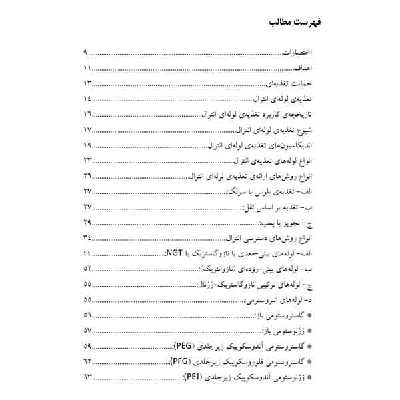 فهرست مطالب
اختصارات ۹
اهداف ۱۱
حمایت تغذیه‌ای ۱۳
تغذیه‌ی لوله‌ای انترال ۱۴
تاریخچه‌ی کاربرد تغذیه‌ی لوله‌ای انترال ۱۶
شیوع تغذیه‌ی لوله‌ای انترال ۱۷
اندیکاسیون‌های تغذیه‌ی لوله‌ای انترال ۱۹
انواع لوله‌های تغذیه‌ی انترال ۲۳
انواع روش‌های ارائه‌ی تغذیه‌ی لوله‌ای انترال ۲۶
الف- تغذیه‌ی بلوس با سرنگ: ۲۷
ب- تغذیه بر اساس ثقل: ۲۷
ج- تجویز با پمپ: ۲۹
انواع روش‌های دسترسی انترال ۳۴
الف- لوله‌های بینی-معدی یا نازوگاستریک یا NGT:
ب- لوله‌های بینی- روده‌ای (نازوانتریک): ۵۲
ج- لوله‌های ترکیبی نازوگاستریک-ژژنال: ۵۵
د- لوله‌های انتروستومی: ۵۵
* گاستروستومی باز: ۵۶
* ژژنوستومی باز: ۵۷
* گاستروستومی آندوسکوپیک زیرجلدی (PEG): ۵۹
* گاستروستومی فلوروسکوپیک زیرجلدی (PFG): ۶۲
* ژژنوستومی آندوسکوپیک زیرجلدی (PEJ): ۶۳